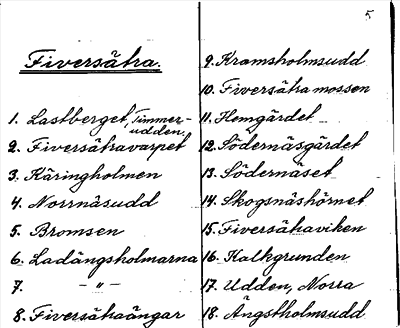 5
Fiversätra.
1. Lastberget, Timmer-
udden.
2. Fiversätravarpet
3. Käringholmen
4. Norrnäsudd
5. Bromsen
6. Ladängsholmarna
7. -"-
8. Fiversätraängar
9. Kramsholmsudd
10. Fiversätramossen
11. Homgärdet
12. Södernäsgärdet
13. Södernäset
14. Skogsnäshörnet
15. Fiversätraviken
16. Kalkgrunden
17. Udden, Norra
18. Ängsholmsudd